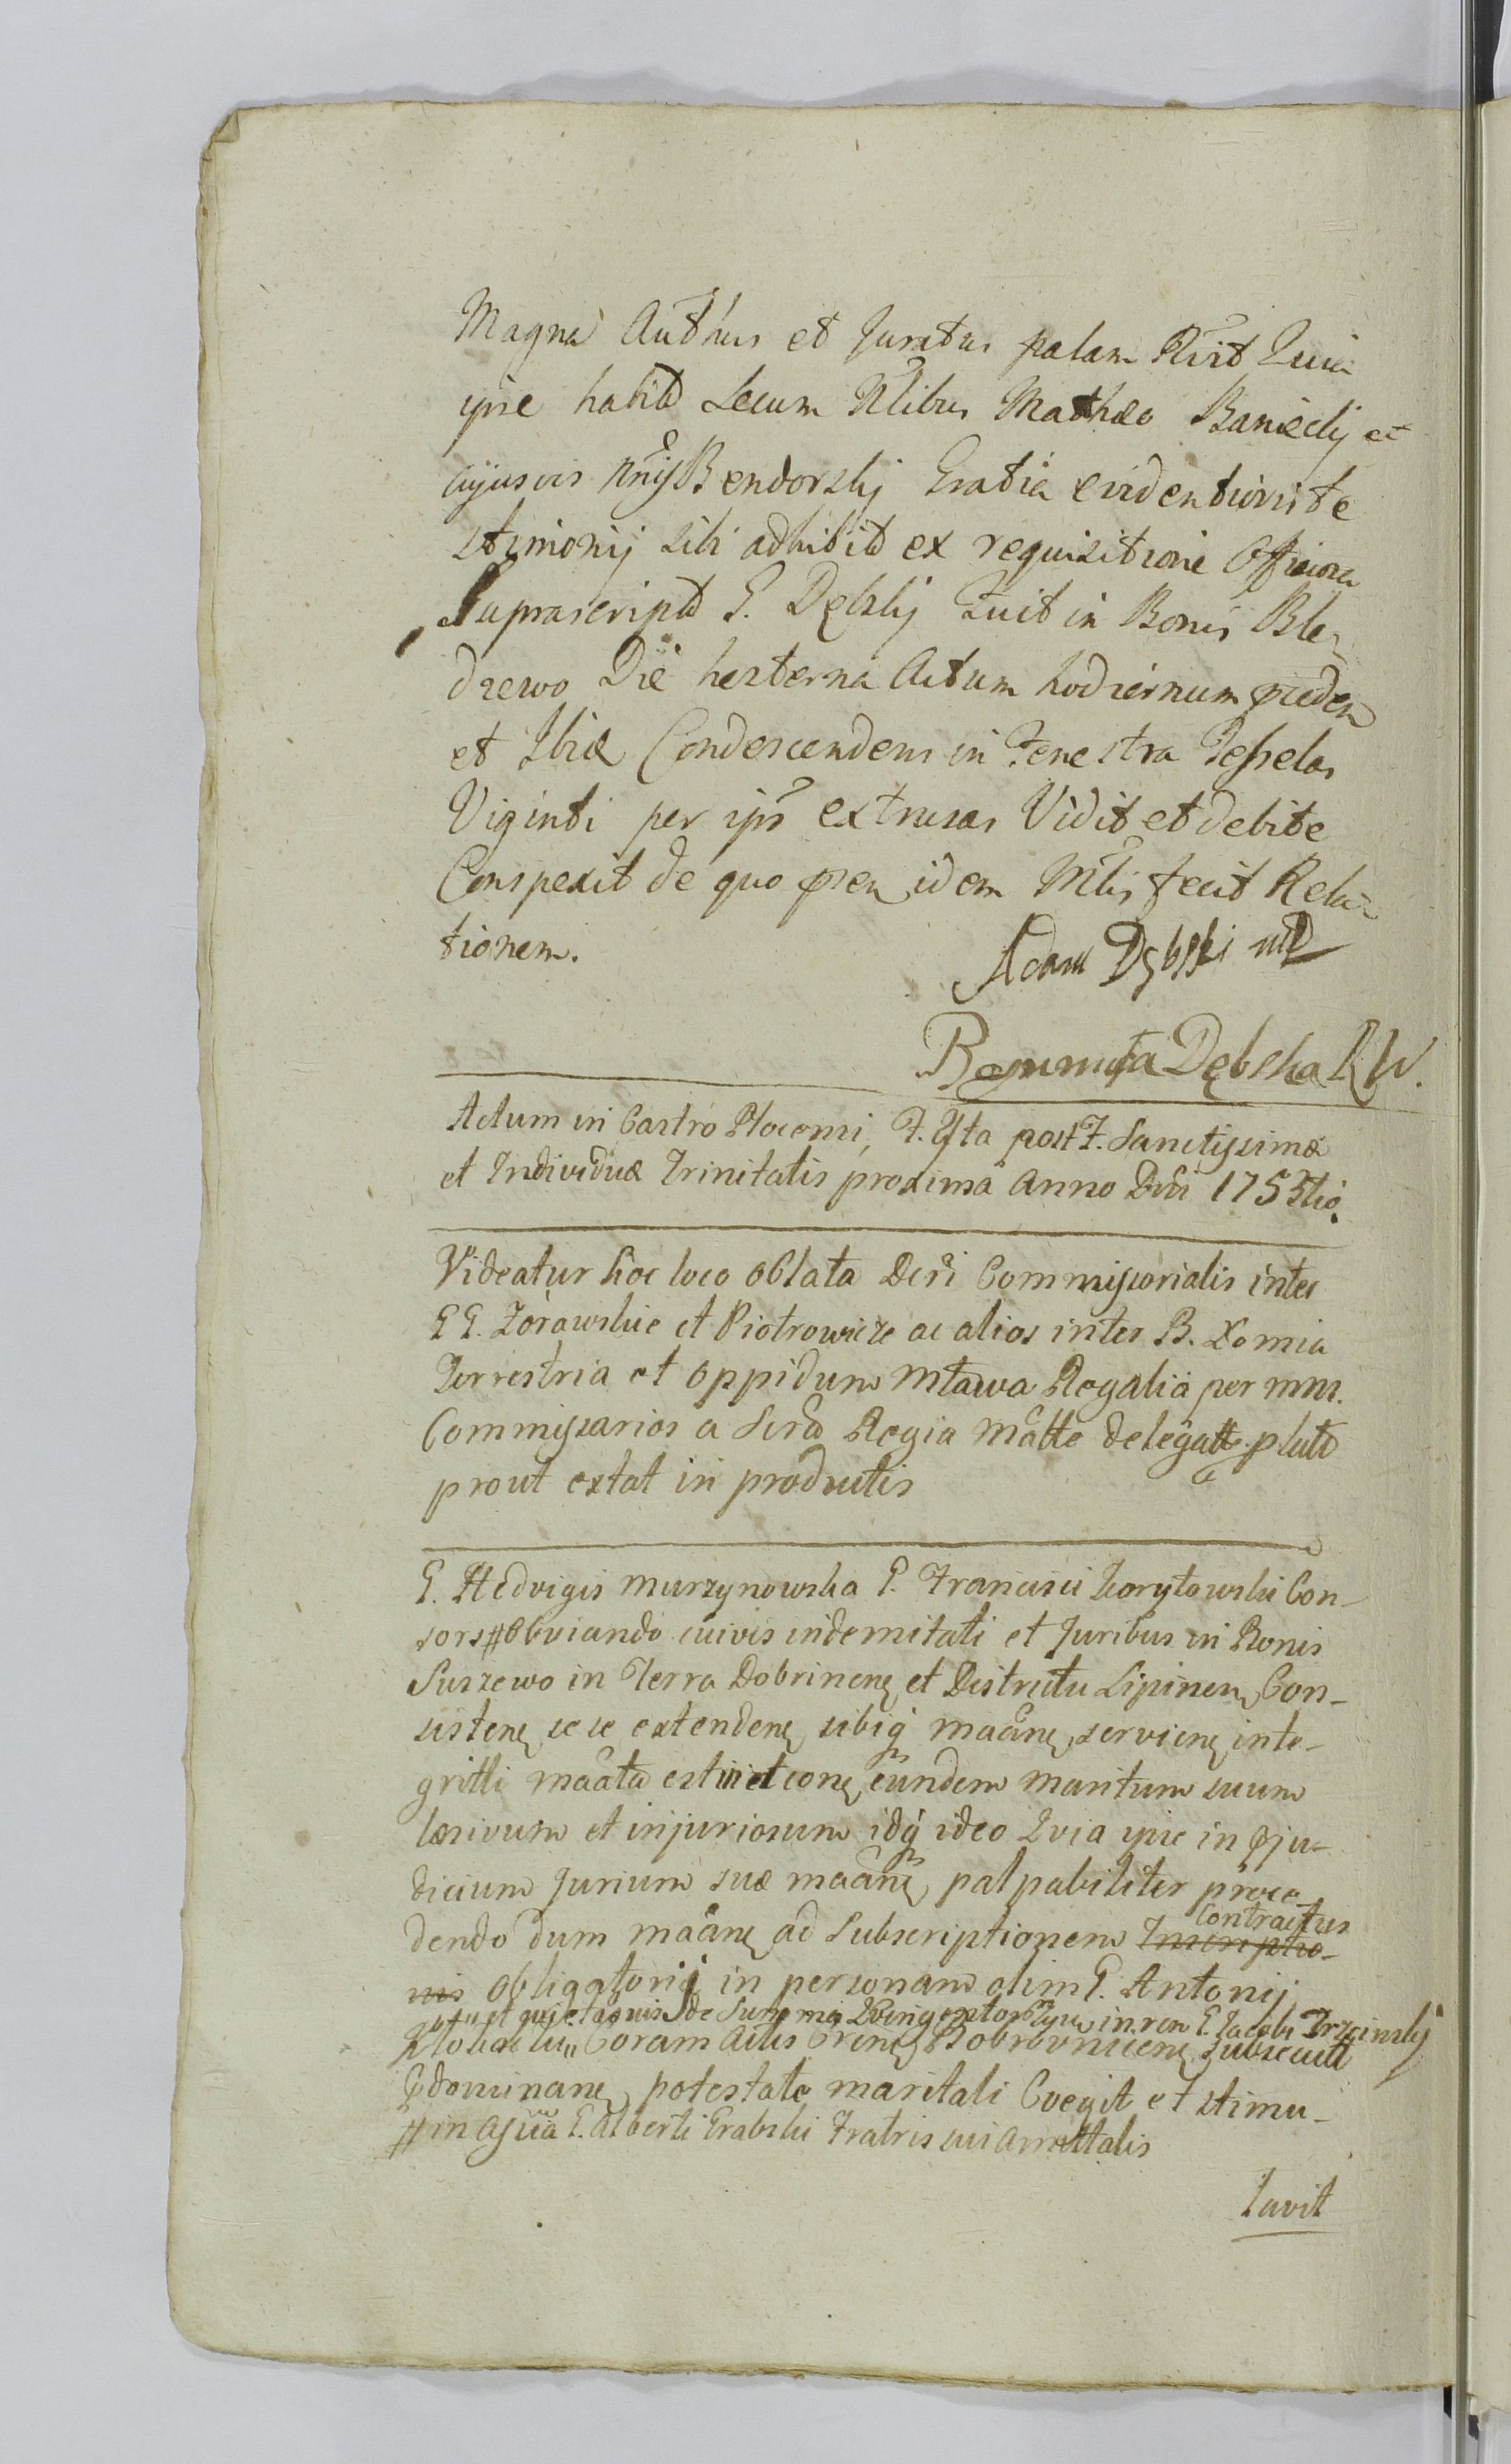 Magna Auth̃us et Juratus palam Rł̃vit Quia
ipse habit̃ secum Nlibus Mathæo Baniecky et
cujusvis Bendorskj Gratia evidentioris te
stimonij sibi adhibit̃ ex requisitione Officiosa
Suprascript̃ G. Dębskj Fuit in Bonis Ble„
drzewo Die hesterna Actum hodiernum præden
et Ibid Condescendens in Fenestra Tesselas
Viginti per ips̃ extrusas Vidit et debite
Conspexit de quo præn idem Mĩlis fecit Rela-
tionem.
Adam Dębski mp
Dębska RW.
Actum in Castro Plocensi, F. 5ta post F. Sanctissimæ
et Individuæ Trinitatis proximã Anno Dñi 1753tio.
Videatur hoc loco oblata Dcri Commissorialis inter
GG. Zorawskie et Piotrowicze ac alios inter B.
Terrestria et oppidum Mława Regalia per mm.
Commissarios a Sern̄a Regia Mãtte delegatt
prout extat in productis
G. Hedvigis Murzynowska G. Francisci Korytowski Con-
sors # Obviando cuivis indemnitati et Juribus in Bonis
Suszewo in Terra Dobrinenę et Districtu Lipinen Con-
sistenę se se extendenę sibiq̃ maãnę servienę inte-
gritti maãta est vi et conę eundem maritum suum
læsivum et injuriosum idq̃ ideo Quia ipse in præju-
dicium Jurium suæ maãnę palpabiliter proce-
dendo dum maãnę ad Subscriptionem Inscriptio- Contractus
nis obligatorij in personam olim G. Antonij
et quietaõnis de Summa Quingentor in rem G. Jacobi Trzcinskj
Coram Actis Bobrovnicenę Subsecutt
prædominanę potestate maritali Coegit et stimu-
# in G. Alberti Grabski Fratris sui amittalis
lavit